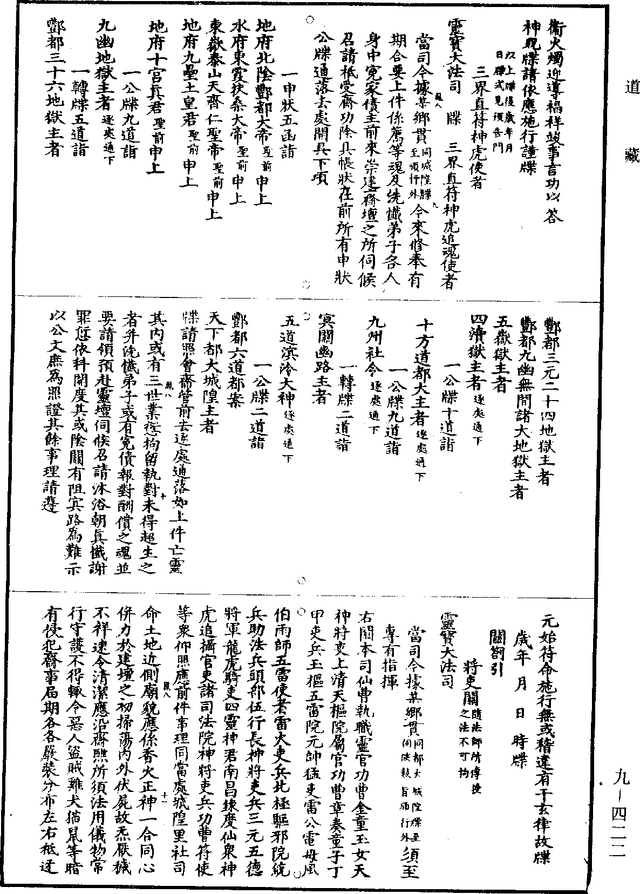 道藏
衞火燭迎導福祥竣事言功以答
神戰牒請依應施行謹牒
以上牒後歲年月
日牒式見預告門
三界直符神虎使者
靈寶大法司 牒 三界直符神虎追魂使者
當司今據某鄉貫同城隍牒至須行外今來修奉有
期合要上件係薦等魂及洗懺弟子各人
身中寃家債主前來崇建齋壇之所伺候
召請祗受齋功除具帳狀在前所有申狀
公牒通落去處開具下項
一申狀五函詣
地府北陰酆都大帝聖前申上
水府東霞扶桑大帝聖前申上
東嶽泰山天齊仁聖帝聖前申上
地府九壘土皇君聖前申上
地府十宫真君聖前申上
一公牒九道詣
九幽地獄主者逐處通下
一轉牒五道詣
酆都三十六地獄主者
酆都三元二十四地獄主者
酆都九幽無間諸大地獄主者
五嶽獄主者
四瀆獄主者逐處通下
一公牒十道詣
十方道都大主者逐處通下
一公牒九道詣
九州社令逐處通下
一轉牒二道詣
冥關幽路主者
五道濱泠大神逐處通下
一公牒二道詣
酆都六道都案
天下都大城隍主者
牒請照會齋管前去逐處通落如上件亡靈
其内或有三世業愆拘留執對未得超生之
者并洗懺弟子或有寃債報對酬償之魂並
要請領預赴靈壇伺候召請沐浴朝真懺謝
罪愆依科開度其或陰關有阻㝠路為難示
以公文庶為照證其餘事理請遵
元始符命施行無或稽違有干玄律故牒
歲年 月 日 時牒
關劄引
將吏關隨法師所傳授之法不可拘
靈寶大法司
當司今據某鄉貫同都大城隍牒至伺候執旨須行外須至
專有指揮
右關本司仙曹執職靈官功曹金童玉女天
神將吏上清天樞院屬官功曹章奏童子丁
甲吏兵玉樞五雷院元帥猛吏雷公電母風
伯雨師五雷使者雷火吏兵北極驅邪院統
兵助法兵頭部伍行長神將吏兵三元五德
將軍龍虎騎吏四靈神君南昌錬度仙衆神
虎追攝官吏諸司法院神將吏兵功曹符使
等衆仰照應前件事理同當處城隍里社司
命土地近側廟貌應係香火正神一合同心
併力於建壇之初掃蕩内外伏屍故炁厭穢
不祥速令清潔應㳂齋照所須法用儀物常
行守護不得輙令惡人盜賊雞犬猫鼠等暗
有侵犯齋事届期各各嚴裝分布左右祗迓
九一四二二